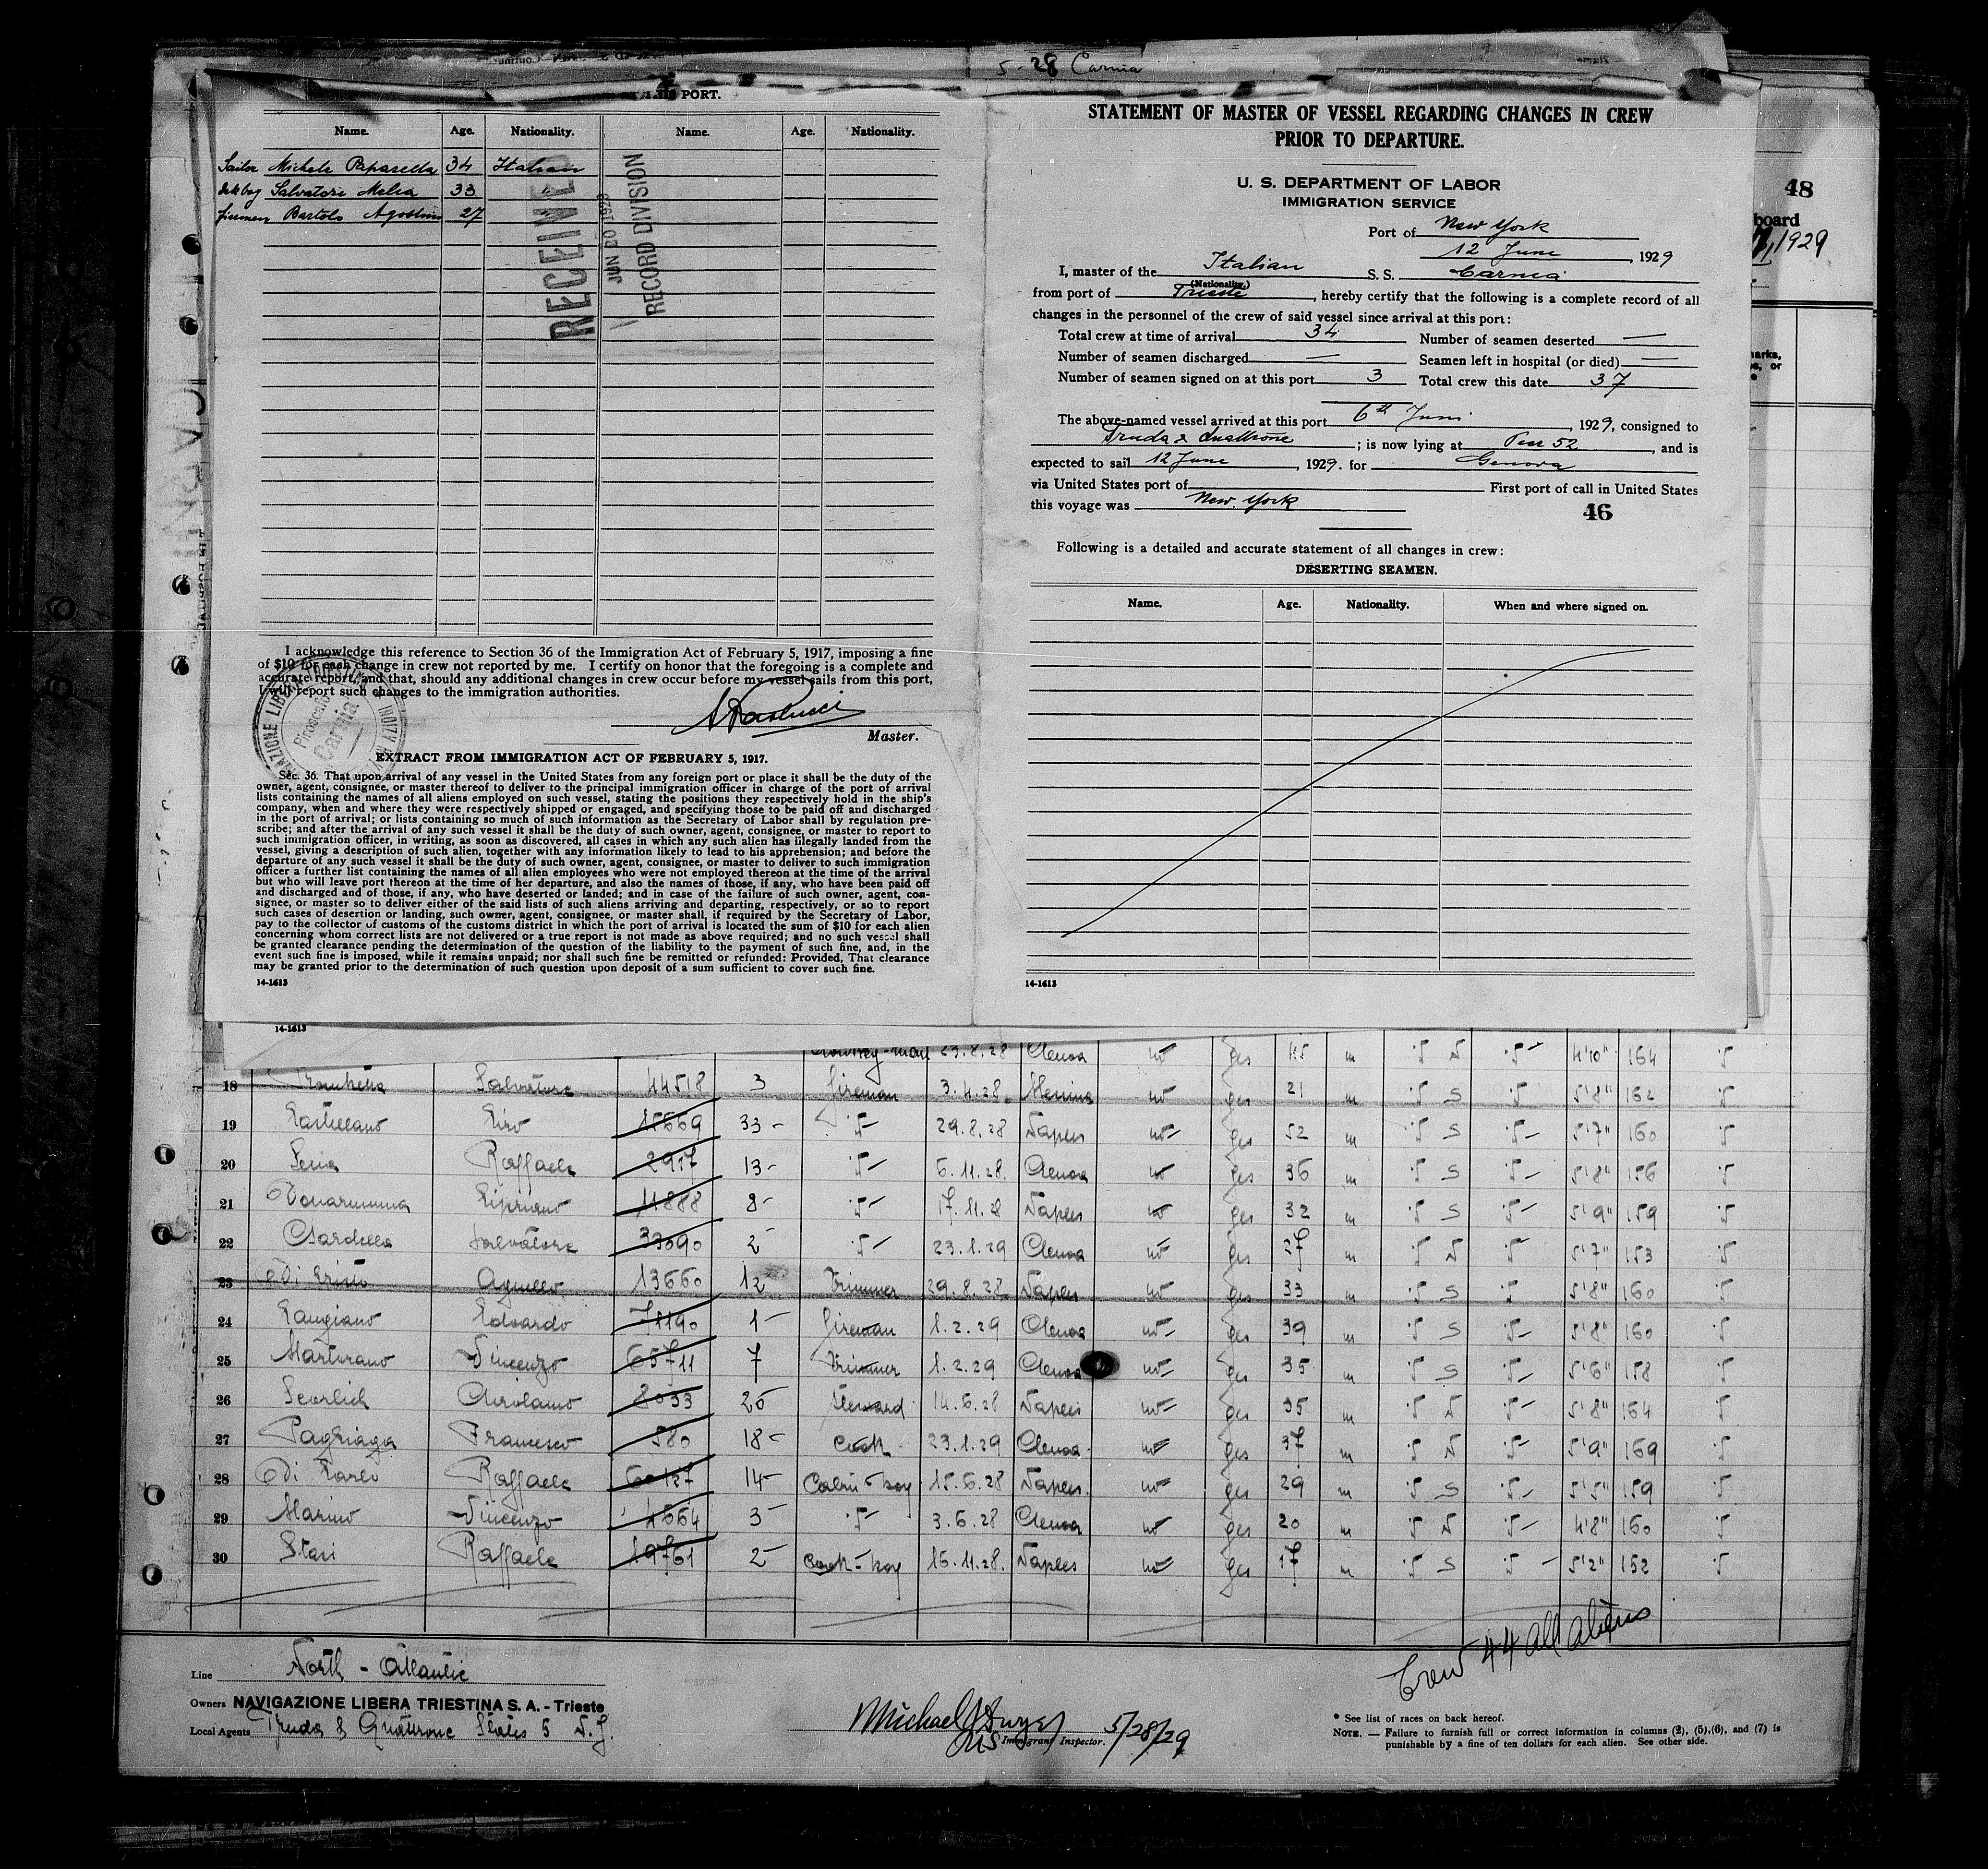 5-28 Carnia
PORT.
Name. Age. Nationality. Name. Age. Nationality.
Sailor Michele Paparella 34 Italian
Salvatore Melia 33
firemen Bartolo Agostino 27
RECEIVED
JUN 20 1929
RECORD DIVISION
I acknowledge this reference to Section 36 of the Immigration Act of February 5, 1917, imposing a fine
of $10 for each change in crew not reported by me. I certify on honor that the foregoing is a complete and
accurate report, and that, should any additional changes in crew occur before my vessel sails from this port,
I will report such changes to the immigration authorities.
Piroscafo
Carnia
Master.
EXTRACT FROM IMMIGRATION ACT OF FEBRUARY 5, 1917.
Sec. 36. That upon arrival of any vessel in the United States from any foreign port or place it shall be the duty of the
owner, agent, consignee, or master thereof to deliver to the principal immigration officer in charge of the port of arrival
lists containing the names of all aliens employed on such vessel, stating the positions they respectively hold in the ship's
company, when and where they were respectively shipped or engaged, and specifying those to be paid off and discharged
in the port of arrival; or lists containing so much of such information as the Secretary of Labor shall by regulation pre-
scribe; and after the arrival of any such vessel it shall be the duty of such owner, agent, consignee, or master to report to
such immigration officer, in writing, as soon as discovered, all cases in which any such alien has illegally landed from the
vessel, giving a description of such alien, together with any information likely to lead to his apprehension; and before the
departure of any such vessel it shall be the duty of such owner, agent, consignee, or master to deliver to such immigration
officer a further list containing the names of all alien employees who were not employed thereon at the time of the arrival
but who will leave port thereon at the time of her departure, and also the names of those, if any, who have been paid off
and discharged and of those, if any, who have deserted or landed; and in case of the failure of such owner, agent, con-
signee, or master so to deliver either of the said lists of such aliens arriving and departing, respectively, or so to report
such cases of desertion or landing, such owner, agent, consignee, or master shall, if required by the Secretary of Labor,
pay to the collector of customs of the customs district in which the port of arrival is located the sum of $10 for each alien
concerning whom correct lists are not delivered or a true report is not made as above required; and no such vessel shall
be granted clearance pending the determination of the question of the liability to the payment of such fine, and, in the
event such fine is imposed, while it remains unpaid; nor shall such fine be remitted or refunded: Provided, That clearance
may be granted prior to the determination of such question upon deposit of a sum sufficient to cover such fine.
14-1613
14-1613
STATEMENT OF MASTER OF VESSEL REGARDING CHANGES IN CREW
PRIOR TO DEPARTURE.
U. S. DEPARTMENT OF LABOR
IMMIGRATION SERVICE
Port of New York
12 June, 1929
I, master of the Italian S. S. Carnia
(Nationality.)
from port of Trieste, hereby certify that the following is a complete record of all
changes in the personnel of the crew of said vessel since arrival at this port:
Total crew at time of arrival 34 Number of seamen deserted —
Number of seamen discharged — Seamen left in hospital (or died) —
Number of seamen signed on at this port 3 Total crew this date 37
The above-named vessel arrived at this port 6th Juni, 1929, consigned to
Truda & Quattrone; is now lying at Pier 52, and is
expected to sail 12 June, 1929. for Genova
via United States port of First port of call in United States
this voyage was New York
46
Following is a detailed and accurate statement of all changes in crew:
DESERTING SEAMEN.
Name. Age. Nationality. When and where signed on.
14-1613
48
board
1929
23.8.28 Genoa no yes 45 m N 4'10" 164
18 Salvatore 44518 3 fireman 3.4.28 Messina no yes 21 m S 5'8" 162
19 Castellano Ciro 15669 33 29.8.28 Naples no yes 52 m S 5'7" 160
20 Raffaele 2917 13 6.11.28 Genoa no yes 36 m S 5'8" 156
21 Cipriano 11888 8 17.11.28 Naples no yes 32 m S 5'9" 159
22 Salvatore 33090 2 23.1.29 Genoa no yes 27 m N 5'7" 153
23 Agnello 13660 12 trimmer 29.8.28 Naples no yes 33 m S 5'8" 160
24 Cangiano Edoardo 71190 1 fireman 1.2.29 Genoa no yes 39 m S 5'8" 160
25 Martorano Vincenzo 65711 7 trimmer 1.2.29 Genoa no yes 35 m S 5'6" 158
26 Girolamo 8033 20 Steward 14.6.28 Naples no yes 35 m N 5'8" 164
27 Francesco 580 18 cook 23.1.29 Genoa no yes 37 m N 5'9" 169
28 Di Carlo Raffaele 60127 14 Cabin-boy 15.6.28 Naples no yes 29 m S 5'5" 159
29 Marino Vincenzo 1564 3 3.6.28 Genoa no yes 20 m N 4'8" 160
30 Raffaele 19761 2 Cook-boy 16.11.28 Naples no yes 17 m S 5'2" 152
Crew 44 all aliens
Line North - Atlantic
Owners NAVIGAZIONE LIBERA TRIESTINA S. A. - Trieste
Local Agents Truda & Quattrone
Immigrant Inspector. 5/28/29
* See list of races on back hereof.
NOTE. — Failure to furnish full or correct information in columns (2), (5), (6), and (7) is
punishable by a fine of ten dollars for each alien. See other side.